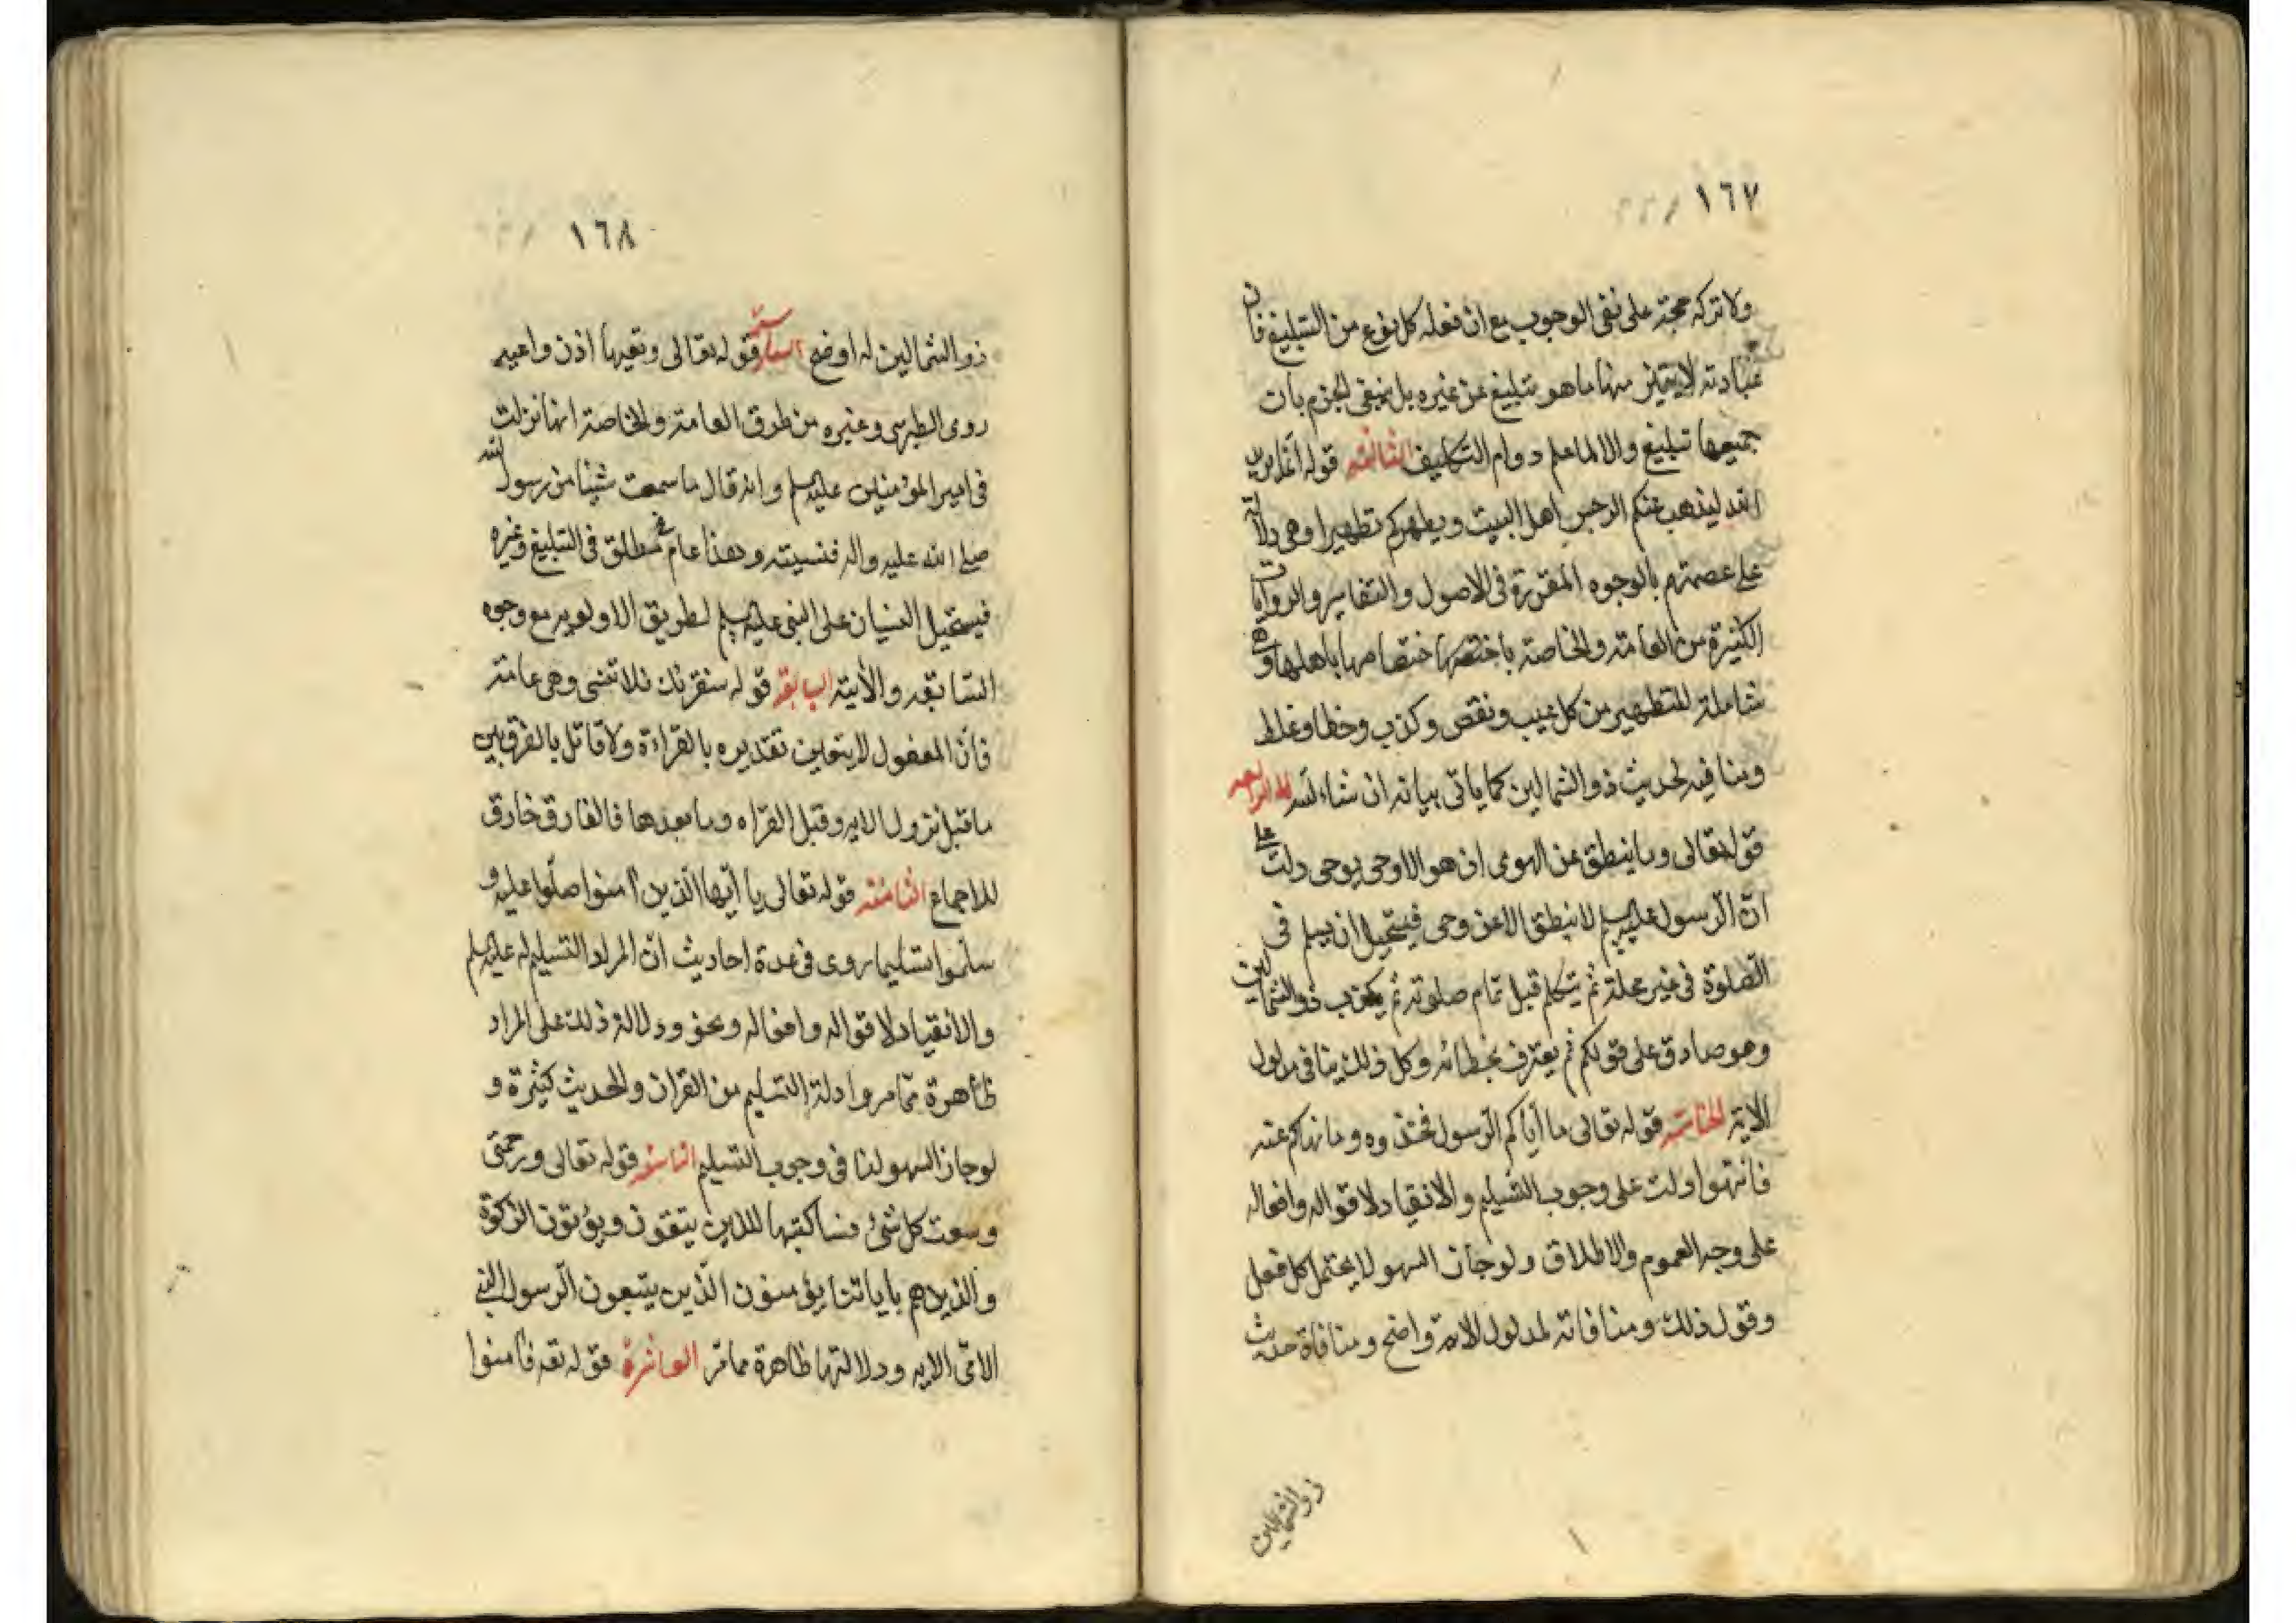 ١٦٧
ولا تركه حجة على نفى الوجوب مع ان فعله كل نوع من التبليغ فان
عبادته لا يتميز منها ما هو تبليغ عن غيره بل ينبغى الجزم بان
جميعها تبليغ والا لما علم دوام التكليف الثالثه قوله انما يريد
الله ليذهب عنكم الرجس اهل البيت ويطهركم تطهيرا وهى دالة
على عصمتهم بالوجوه المقررة فى الاصول والتفاسير والروايات
الكثيرة من العامة والخاصة باختصها ختصامها باهلها وهى
شاملة للتطهير من كل عيب ونقص وكذب وخطا وغلط
وينافيه لحديث ذو الشمالين كما ياتى بيانه ان شاء الله الرابعه
قوله تعالى وما ينطق عن الهوى ان هو الا وحى يوحى دلت على
ان الرسول عليه السلم لا ينطق الا عن وحى فيستحيل ان يسلم فى
الصلوة فى غير محله ثم يتكلم قبل تمام صلوته ثم يكذب ذو الشمالين
وهو صادق على قولكم ثم يعترف بخطائه وكل ذلك ينافى مدلول
الاية الخامسة قوله تعالى ما اتاكم الرسول فخذوه وما نهاكم عنه
فانتهوا دلت على وجوب التسليم والانقياد لاقواله وافعاله
على وجه العموم والاطلاق ولو جاز السهو لاحتمل كل فعل
وقول ذلك ومنافاته لمدلول الاية واضح ومنافاة حديث
ذو الشمالين
١٦٨
ذو الشمالين له اوضح السادسة قوله تعالى وتعيها اذن واعيه
روى الطبرسى وغيره من طرق العامة والخاصة انها نزلت
فى امير المؤمنين عليه السلم وانه قال ما سمعت شيئا من رسول الله
صلى الله عليه واله فنسيته وهذا عام مطلق فى التبليغ وغيره
فيستحيل النسيان على النبى عليه السلم لطريق الاولويه مع وجوه
السابقه والأية السابعة قوله سنقرئك فلا تنسى وهى عامة
فان المفعول لا يتعين تقديره بالقراءة ولا قائل بالفرق بين
ما قبل نزول الايه وقبل القراه وما بعدها فالفارق خارق
للاجماع الثامنة قوله تعالى يا ايها الذين آمنوا صلوا عليه و
سلموا تسليما روى فى عدة احاديث ان المراد التسليم له عليه السلم
والانقياد لاقواله وافعاله ونحو ودلالة ذلك على المراد
ظاهرة مما مر وادلة التسليم من القران والحديث كثيرة و
لو جاز السهو لنا فى وجوب التسليم التاسعة قوله تعالى ورحمتى
وسعت كل شئ فساكتبها للذين يتقون ويؤتون الزكوة
والذين هم باياتنا يؤمنون الذين يتبعون الرسول النبى
الامى الايه ودلالتها ظاهرة مما مر العاشرة قوله تعه فامنوا